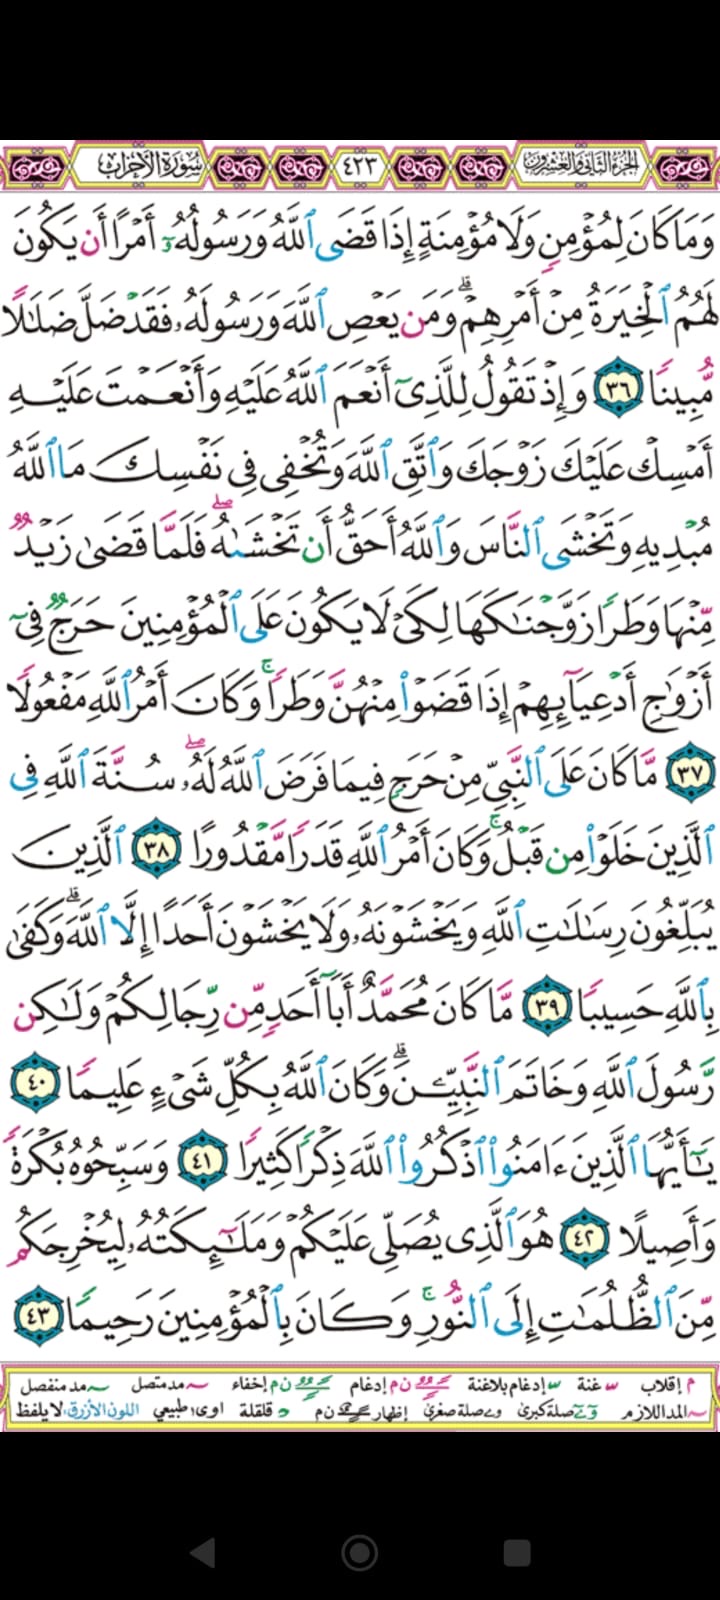 الجزء الثاني والعشرون ٤٢٣ سورة الأحزاب
وَمَا كَانَ لِمُؤْمِنٍ وَلَا مُؤْمِنَةٍ إِذَا قَضَى ٱللَّهُ وَرَسُولُهُۥٓ أَمْرًا أَن يَكُونَ
لَهُمُ ٱلْخِيَرَةُ مِنْ أَمْرِهِمْ ۗ وَمَن يَعْصِ ٱللَّهَ وَرَسُولَهُۥ فَقَدْ ضَلَّ ضَلَٰلًا
مُّبِينًا ٣٦ وَإِذْ تَقُولُ لِلَّذِىٓ أَنْعَمَ ٱللَّهُ عَلَيْهِ وَأَنْعَمْتَ عَلَيْهِ
أَمْسِكْ عَلَيْكَ زَوْجَكَ وَٱتَّقِ ٱللَّهَ وَتُخْفِى فِى نَفْسِكَ مَا ٱللَّهُ
مُبْدِيهِ وَتَخْشَى ٱلنَّاسَ وَٱللَّهُ أَحَقُّ أَن تَخْشَىٰهُ ۖ فَلَمَّا قَضَىٰ زَيْدٌ
مِّنْهَا وَطَرًا زَوَّجْنَٰكَهَا لِكَىْ لَا يَكُونَ عَلَى ٱلْمُؤْمِنِينَ حَرَجٌ فِىٓ
أَزْوَٰجِ أَدْعِيَآئِهِمْ إِذَا قَضَوْا۟ مِنْهُنَّ وَطَرًا ۚ وَكَانَ أَمْرُ ٱللَّهِ مَفْعُولًا
٣٧ مَّا كَانَ عَلَى ٱلنَّبِىِّ مِنْ حَرَجٍ فِيمَا فَرَضَ ٱللَّهُ لَهُۥ ۖ سُنَّةَ ٱللَّهِ فِى
ٱلَّذِينَ خَلَوْا۟ مِن قَبْلُ ۚ وَكَانَ أَمْرُ ٱللَّهِ قَدَرًا مَّقْدُورًا ٣٨ ٱلَّذِينَ
يُبَلِّغُونَ رِسَٰلَٰتِ ٱللَّهِ وَيَخْشَوْنَهُۥ وَلَا يَخْشَوْنَ أَحَدًا إِلَّا ٱللَّهَ ۗ وَكَفَىٰ
بِٱللَّهِ حَسِيبًا ٣٩ مَّا كَانَ مُحَمَّدٌ أَبَآ أَحَدٍ مِّن رِّجَالِكُمْ وَلَٰكِن
رَّسُولَ ٱللَّهِ وَخَاتَمَ ٱلنَّبِيِّـۧنَ ۗ وَكَانَ ٱللَّهُ بِكُلِّ شَىْءٍ عَلِيمًا ٤٠
يَٰٓأَيُّهَا ٱلَّذِينَ ءَامَنُوا۟ ٱذْكُرُوا۟ ٱللَّهَ ذِكْرًا كَثِيرًا ٤١ وَسَبِّحُوهُ بُكْرَةً
وَأَصِيلًا ٤٢ هُوَ ٱلَّذِى يُصَلِّى عَلَيْكُمْ وَمَلَٰٓئِكَتُهُۥ لِيُخْرِجَكُم
مِّنَ ٱلظُّلُمَٰتِ إِلَى ٱلنُّورِ ۚ وَكَانَ بِٱلْمُؤْمِنِينَ رَحِيمًا ٤٣
م إقلاب غنة إدغام بلاغنة ن م إدغام ن م إخفاء مد متصل مد منفصل
المد اللازم صلة كبرى صلة صغرى إظهار ن م قلقلة اوى، طبيعي اللون الأزرق، لا يلفظ